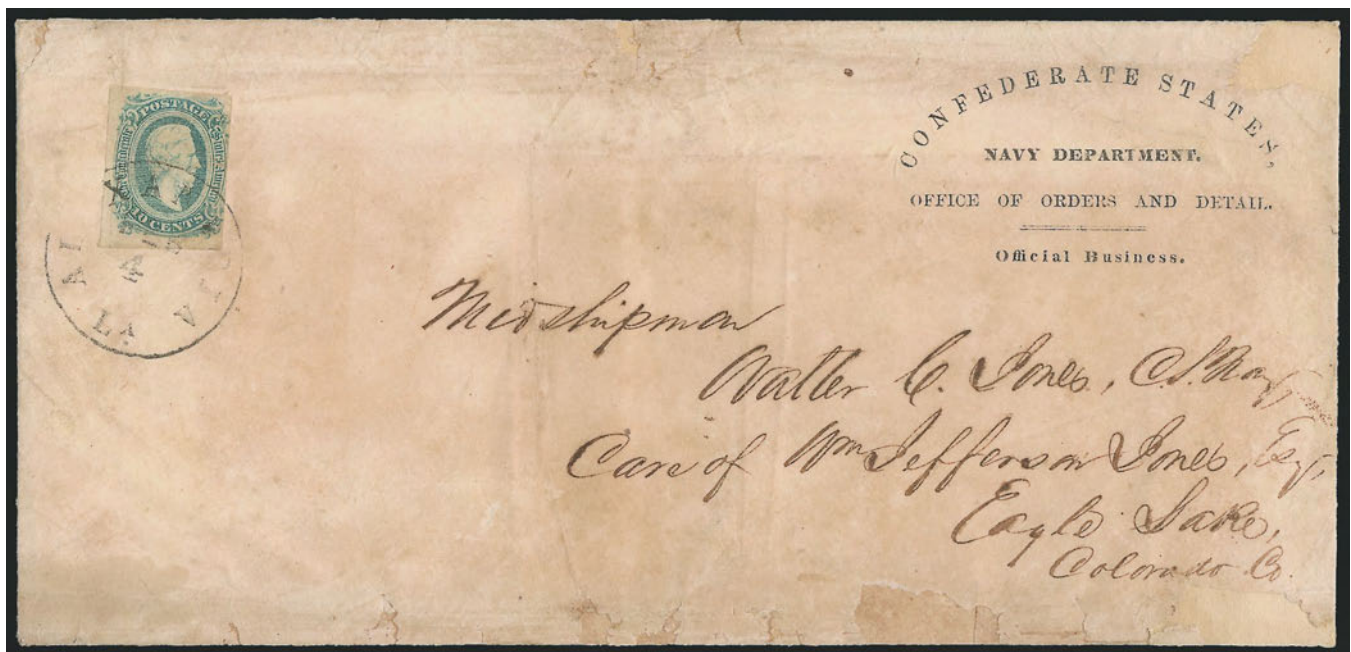 POSTAGE
The Confederate States of America
10 CENTS
AL
LA
CONFEDERATE STATES,
NAVY DEPARTMENT.
OFFICE OF ORDERS AND DETAIL.
Official Business.
Midshipman
Walter C. Jones, C.S. Navy
Care of Wm Jefferson Jones, Esqr,
Eagle Lake,
Colorado Co.